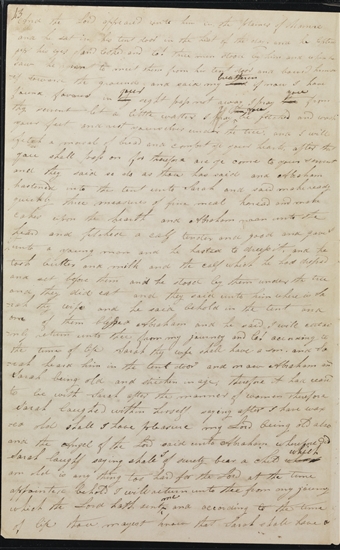 13
And the Lord appeared unto him in the plains of Mamre
and he sat in the tent door in the heat of the day and he lifted
up his eyes and looked and lo three men stood by him and
saw he ran to meet them from his tent door and bowed himself
toward the ground and said my brethren if now I have
found favour in your sight pass not away I pray you from
thy servant let a little water I pray you be fetched and wash
your feet and rest yourselves under the tree and I will
fetch a morsel of bread and comfort ye your hearts after that
you shall pass on for therefore are ye come to your servant
and they said so do as thou has said and Abraham
hastened into the tent unto Sarah and said make ready
quickly three measures of fine meal knead and make
cakes upon the hearth and Abraham ran unto the
heard and fetched a calf tender and good and gave
unto a young man and he hasted to dress it and he
took butter and milk and the calf which he had dressed
and set before them and he stood by them under the tree
and they did eat and they said unto him where is Sa
rah thy wife and he said behold in the tent and
one of them blessed Abraham and he said I will cer
tainly return unto thee from my journey and lo according to
the time of life Sarah thy wife shall have a son and Sa
rah heard him in the tent door and now Abraham and
Sarah being old and stricken in age therefore it had ceased
to be with Sarah after the manner of women therefore
Sarah laughed within herself saying after I have wax
ed old shall I have pleasure my Lord being old also
and the angel of the Lord said unto Abraham wherefore did
Sarah laugh saying shall I of surety bear a child which
am old is any thing too hard for the Lord at the time
appointed behold I will return unto thee from my journey
which the Lord hath sent me and according to the time
of life thou mayest know that Sarah shall have a